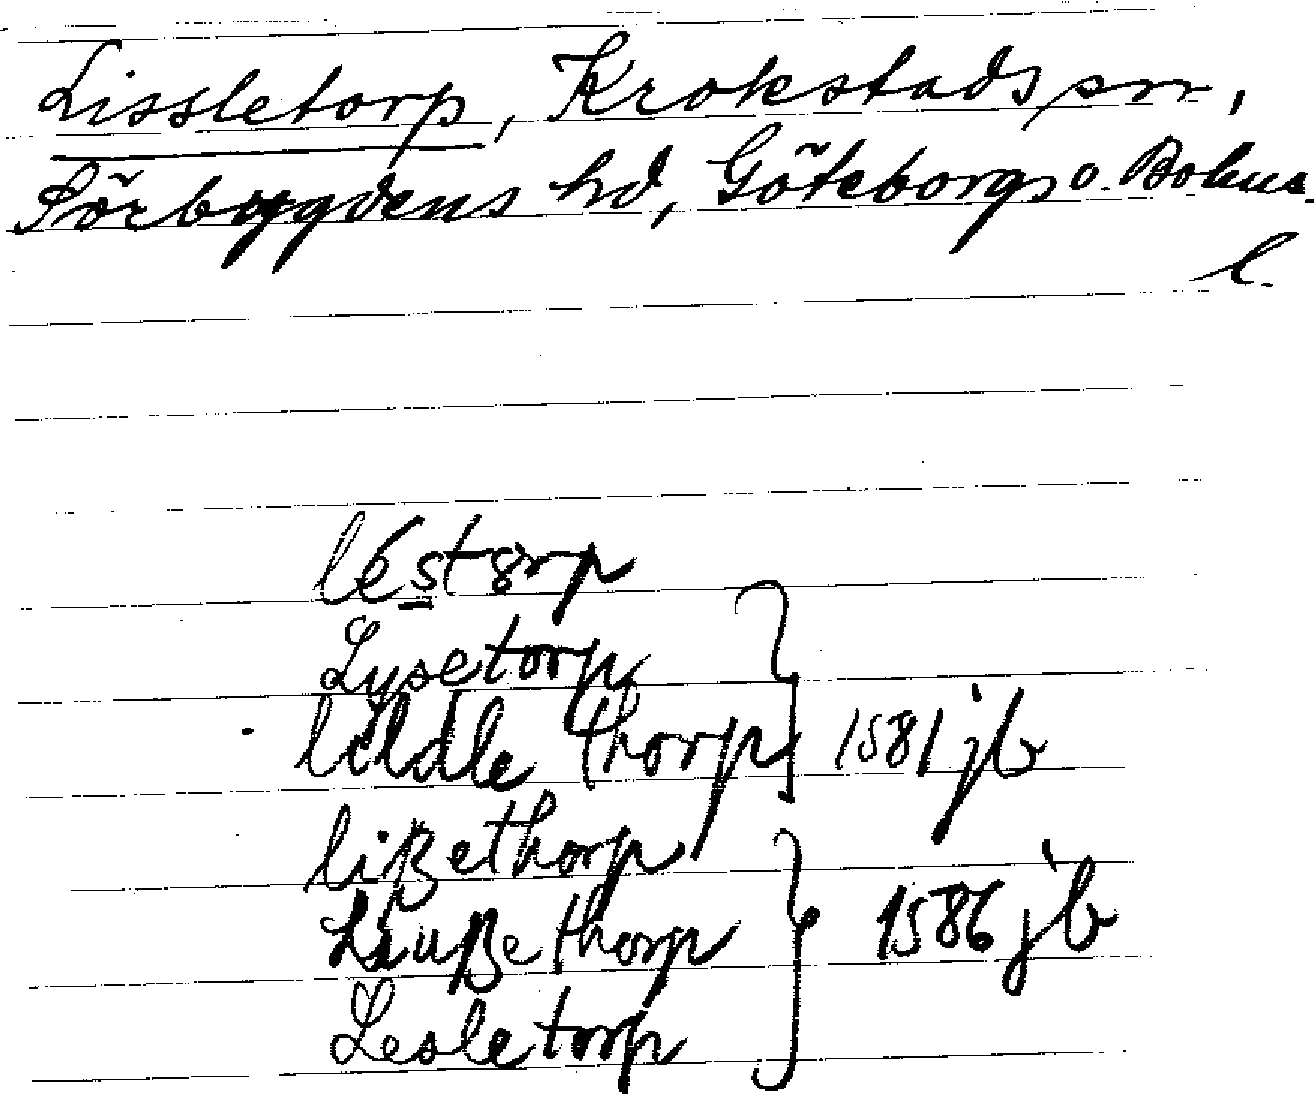 Lissletorp, Krokstads sn,
Sörbygdens hd, Göteborgs o. Bohus
l.
léstorp
Lysetorp
lildle thorp } 1581 jb
lißethorp
Lißethorp } 1586 jb
Lesletorp